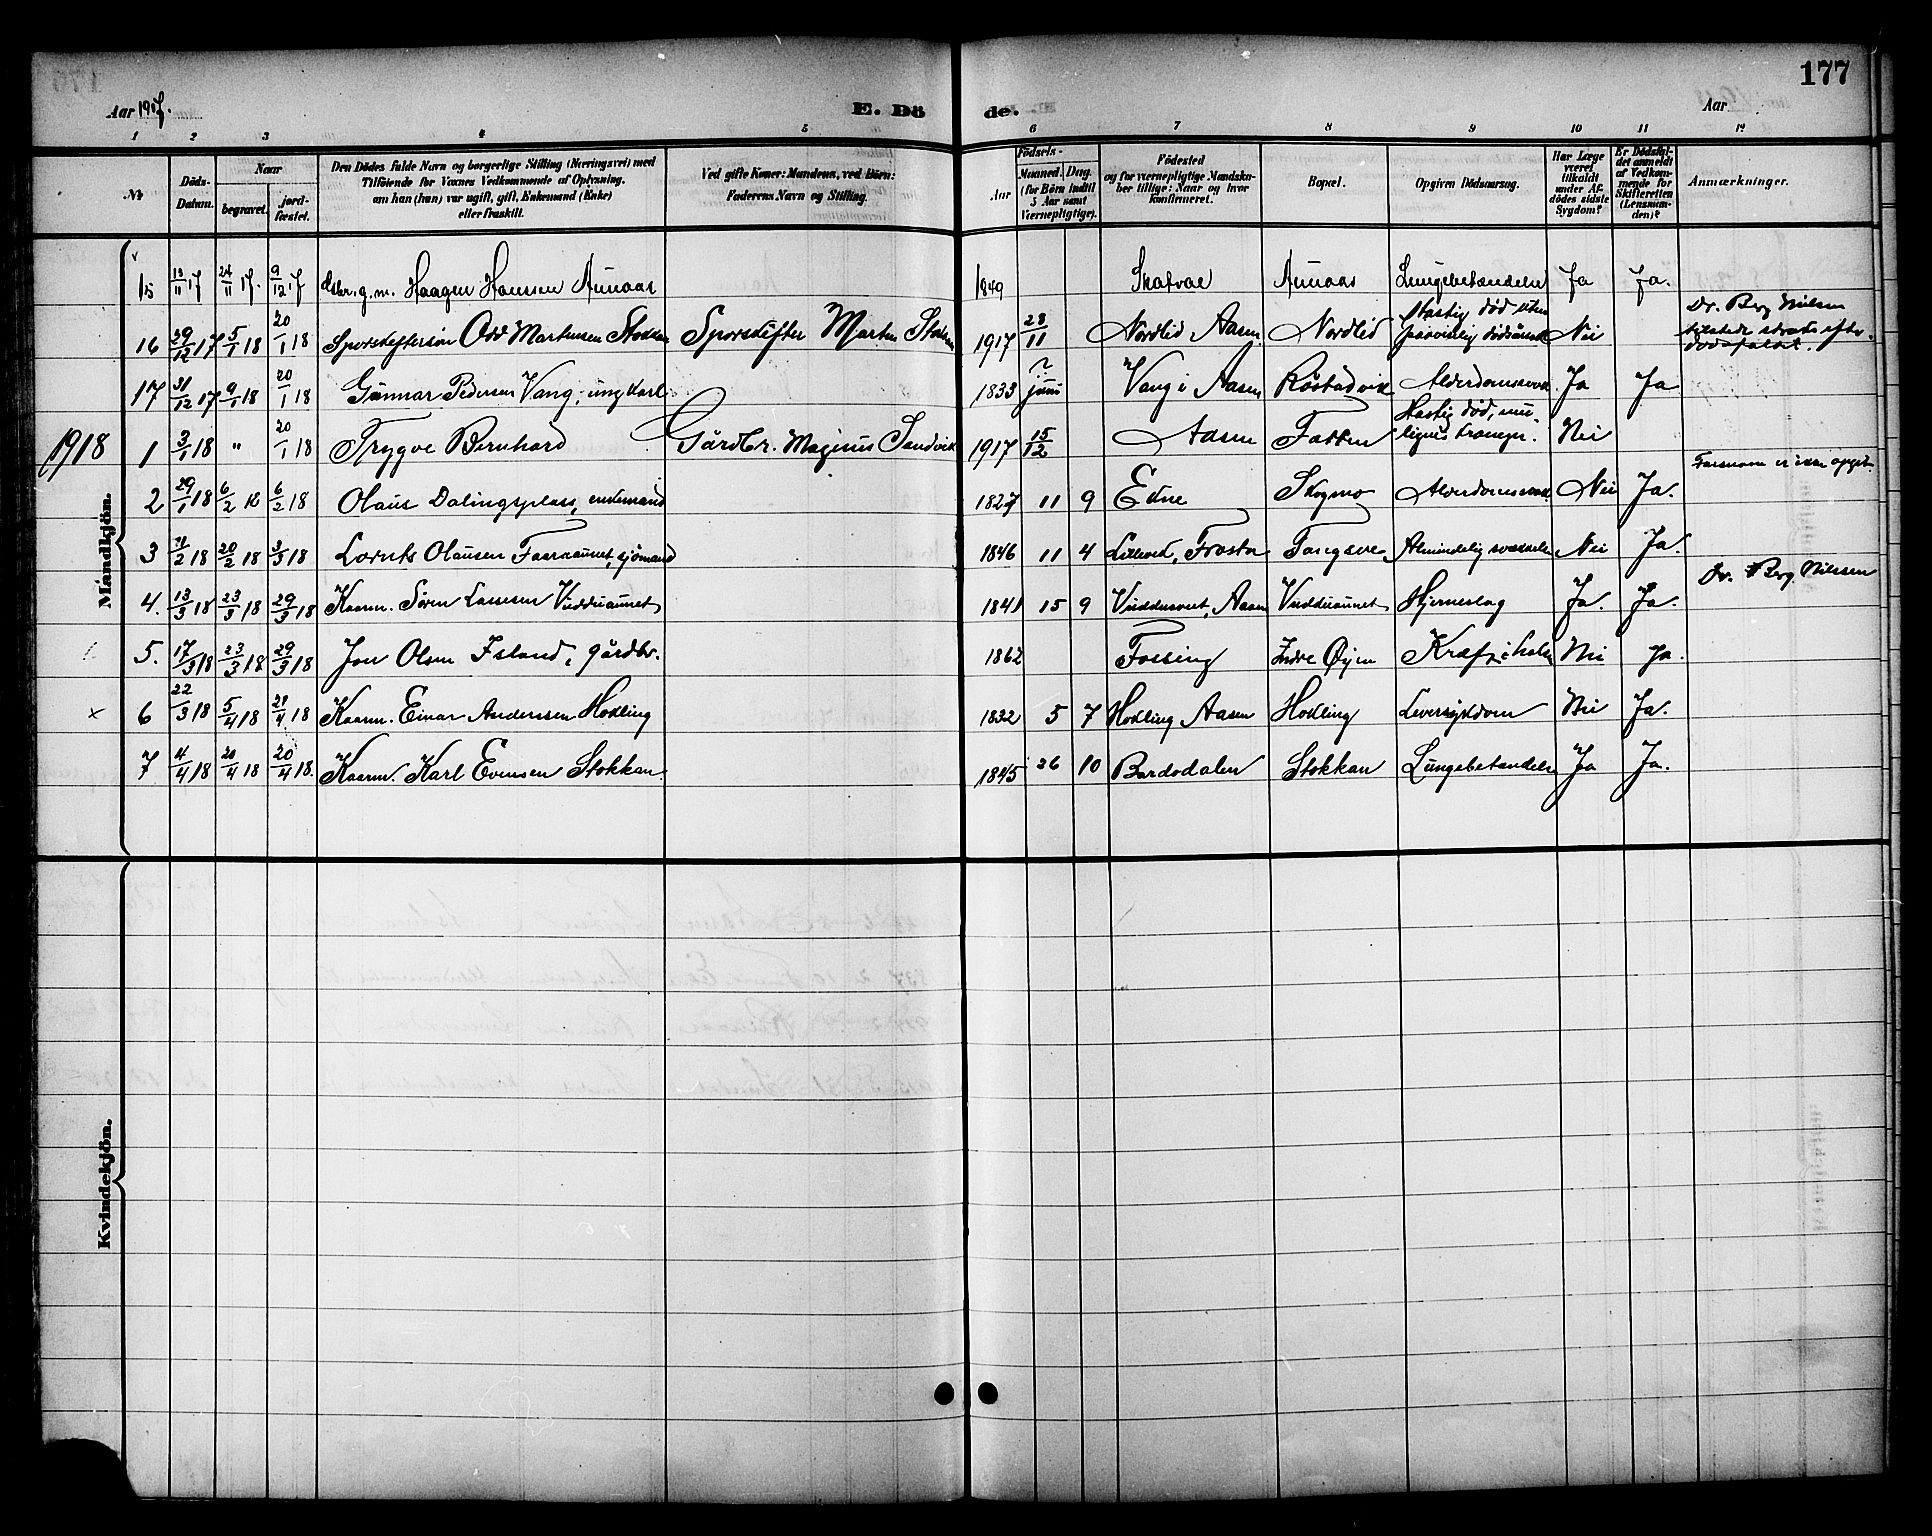 177
Aar 1917.
E. Dö
de.
Aar
1 2 3 4 5 6 7 8 9 10 11 12
No
Döds-Datum.
Naar
begravet.
jord-fæstet.
Den Dödes fulde Navn og borgerlige Stilling (Næringsvei) med
Tilföiende for Voxnes Vedkommende af Oplysning,
om han (hun) var ugift, gift, Enkemand (Enke)
eller fraskilt.
Ved gifte Koner: Mandens, ved Börn:
Faderens Navn og Stilling.
Födsels-
Aar
Maaned. Dag.
(for Börn indtil
5 Aar samt
Værnepligtige).
Födested
og for værnepligtige Mandska-
ber tillige: Naar og hvor
konfirmeret.
Bopæl.
Opgiven Dödsaarsag.
Har Læge
været
tilkaldt
under Af-
dödes sidste
Sygdom?
Er Dödsfal-
det anmeldt
af Vedkom-
mende for
Skifteretten
(Lensman-
den)?
Anmærkninger.
Mandkjön.
15 13/11 17 24/11 17. 9/12 17 g. m. Haagen Hanssen Aunaas 1849 Skatval Aunaas Lungebetændelse Ja Ja.
16 29/12 17 5/1 18 20/1 18 Odd Martinsen 1917 28/11 Nordlid Aasen Nordlid Hastig död uten Nei Dr. Berg Nilsen
17 31/12 17 9/1 18 20/1 18 Gunnar Pedersen Vang, ungkarl 1833 ? juni Vang i Aasen Røstadvik Ja Ja
1918
1 3/1 18 " 20/1 18 Trygve Bernhard Gårdbr. Magnus Sandvik 1917 15/12 Aasen Hastig död, Nei
2 29/1 18 6/2 18 6/2 18 Olaus Dalingsplass, enkemand 1827 11 9 Ekne Skogmo Nei Ja. Farsnavn er ikke opgit
3 11/2 18 20/2 18 3/3 18 Lornts Olausen sjömand 1846 11 4 Frosta Almindelig Nei Ja.
4. 13/3 18 23/3 18 29/3 18 Kaarm. Sören Lassesen Vudduaunet 1841 15 9 Aasen Vudduaunet Hjerneslag Ja. Ja. Dr. Berg Nilssen
5. 17/3 18 23/3 18 29/3 18 Jon Olsen Island, gårdbr. 1862 Fossing Indre Øyen Kræft i halsen Nei Ja.
x 6 22/3 18 5/4 18 21/4 18 Kaarm. Einar Anderssen Hokling 1832 5 7 Hokling Aasen Hokling Leversykdom Nei Ja.
7 4/4 18 20/4 18 20/4 18. Kaarm. Karl Evensen Stokkan 1845 26 10 Bardodalen Stokkan Lungebetændelse Ja Ja.
Kvindekjön.